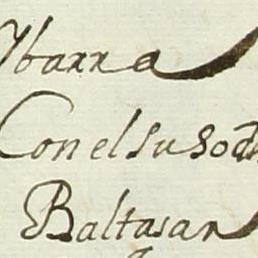 Ybarra
Con el Susod
Baltasar